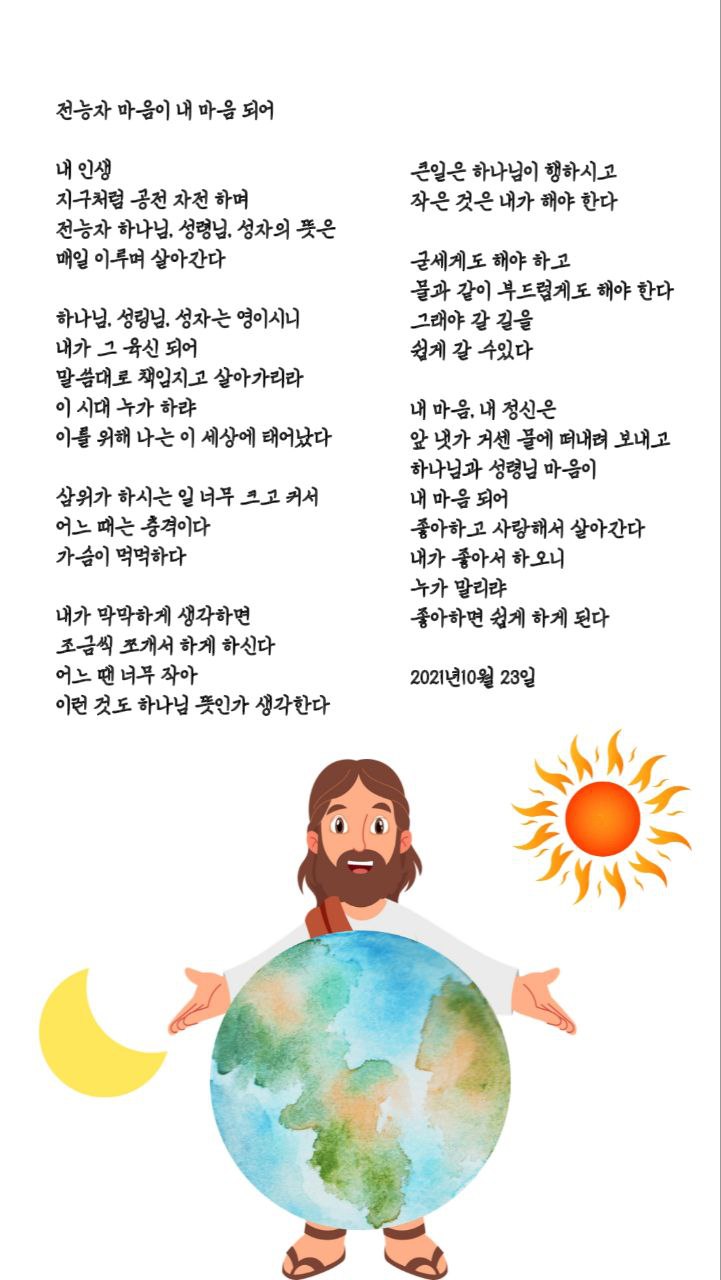 전능자 마음이 내 마음 되어
내 인생
지구처럼 공전 자전 하며
전능자 하나님, 성령님, 성자의 뜻은
매일 이루며 살아간다
하나님, 성링님, 성자는 영이시니
내가 그 육신 되어
말씀대로 책임지고 살아가리라
이 시대 누가 하랴
이를 위해 나는 이 세상에 태어났다
삼위가 하시는 일 너무 크고 커서
어느 때는 충격이다
가슴이 먹먹하다
내가 막막하게 생각하면
조금씩 쪼개서 하게 하신다
어느 땐 너무 작아
이런 것도 하나님 뜻인가 생각한다
큰일은 하나님이 행하시고
작은 것은 내가 해야 한다
굳세게도 해야 하고
물과 같이 부드럽게도 해야 한다
그래야 갈 길을
쉽게 갈 수있다
내 마음, 내 정신은
앞 냇가 거센 물에 떠내려 보내고
하나님과 성령님 마음이
내 마음 되어
좋아하고 사랑해서 살아간다
내가 좋아서 하오니
누가 말리랴
좋아하면 쉽게 하게 된다
2021년10월 23일